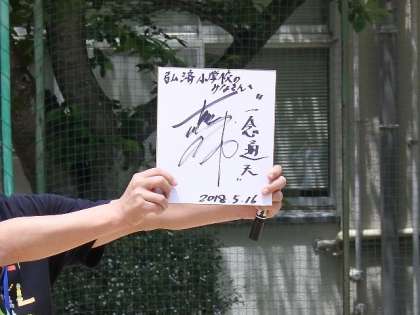 弘済小学校の
みなさんへ
"一念通天"
2018.5.16